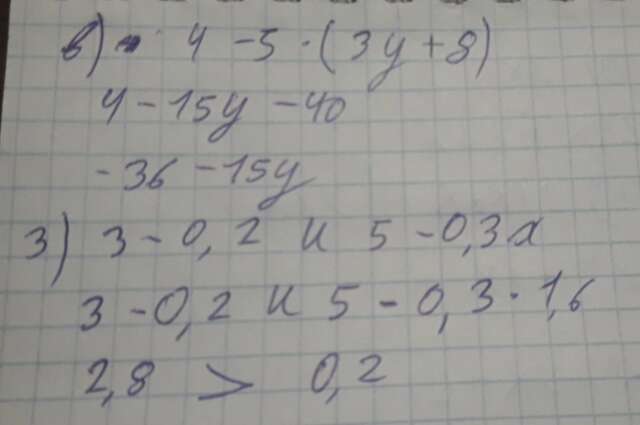 в) 4 - 5 · (3y + 8)
4 - 15y - 40
- 36 - 15y
3) 3 - 0,2 и 5 - 0,3x
3 - 0,2 и 5 - 0,3 · 1,6
2,8 > 0,2